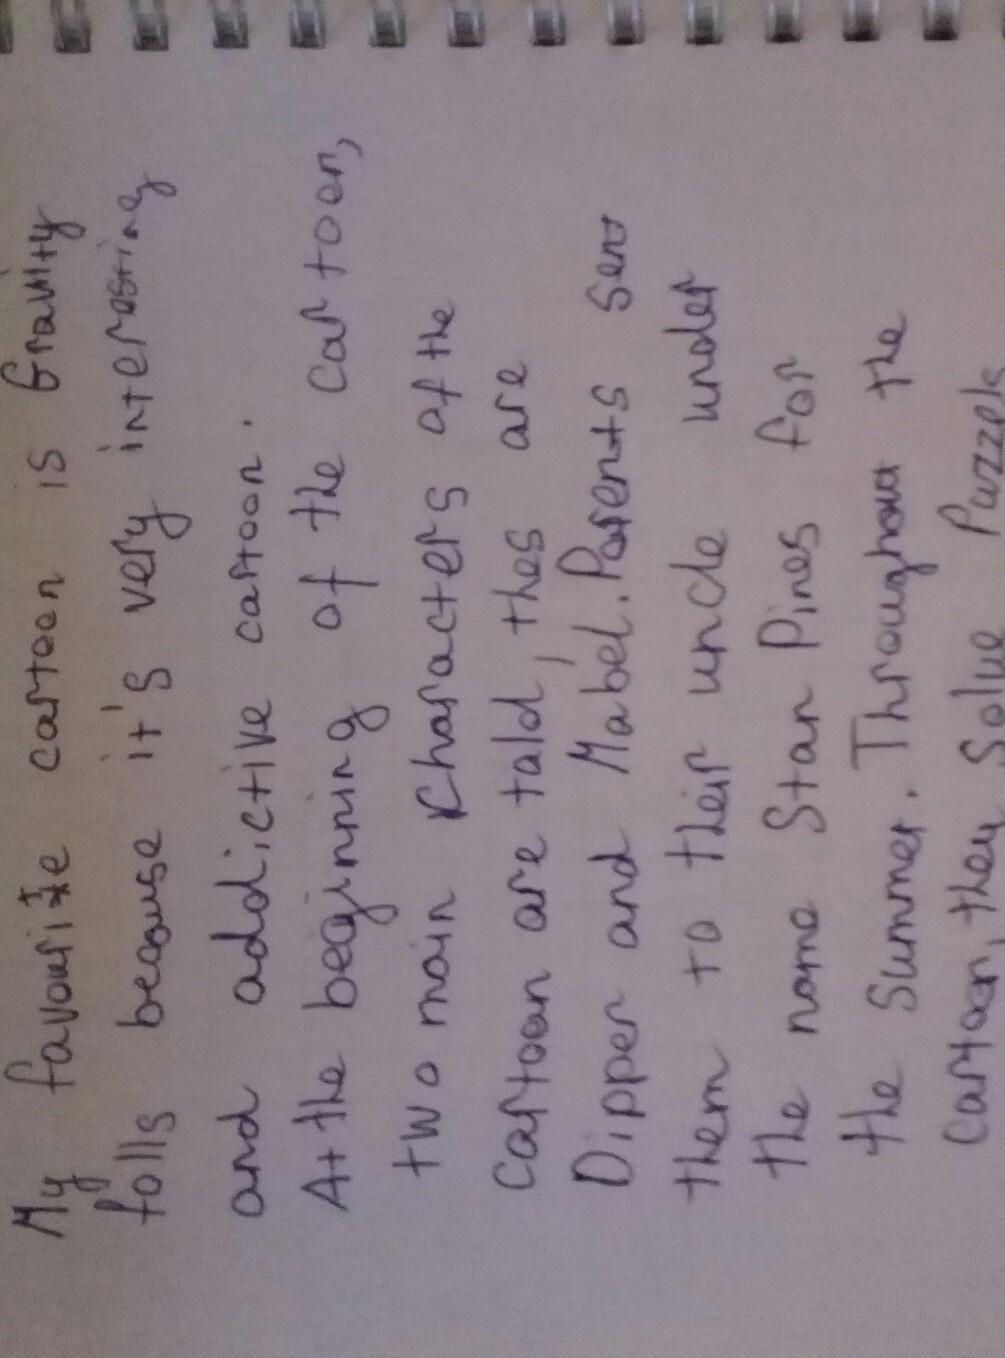 My favourite cartoon is Gravity
folls because it's very interesting
and addictive cartoon.
At the beginning of the cartoon,
two main characters of the
cartoon are told, thes are
Dipper and Mabel. Parents sent
them to their uncle under
the name Stan Pines for
the summer. Throughout the
cartoon, they solve Puzzels